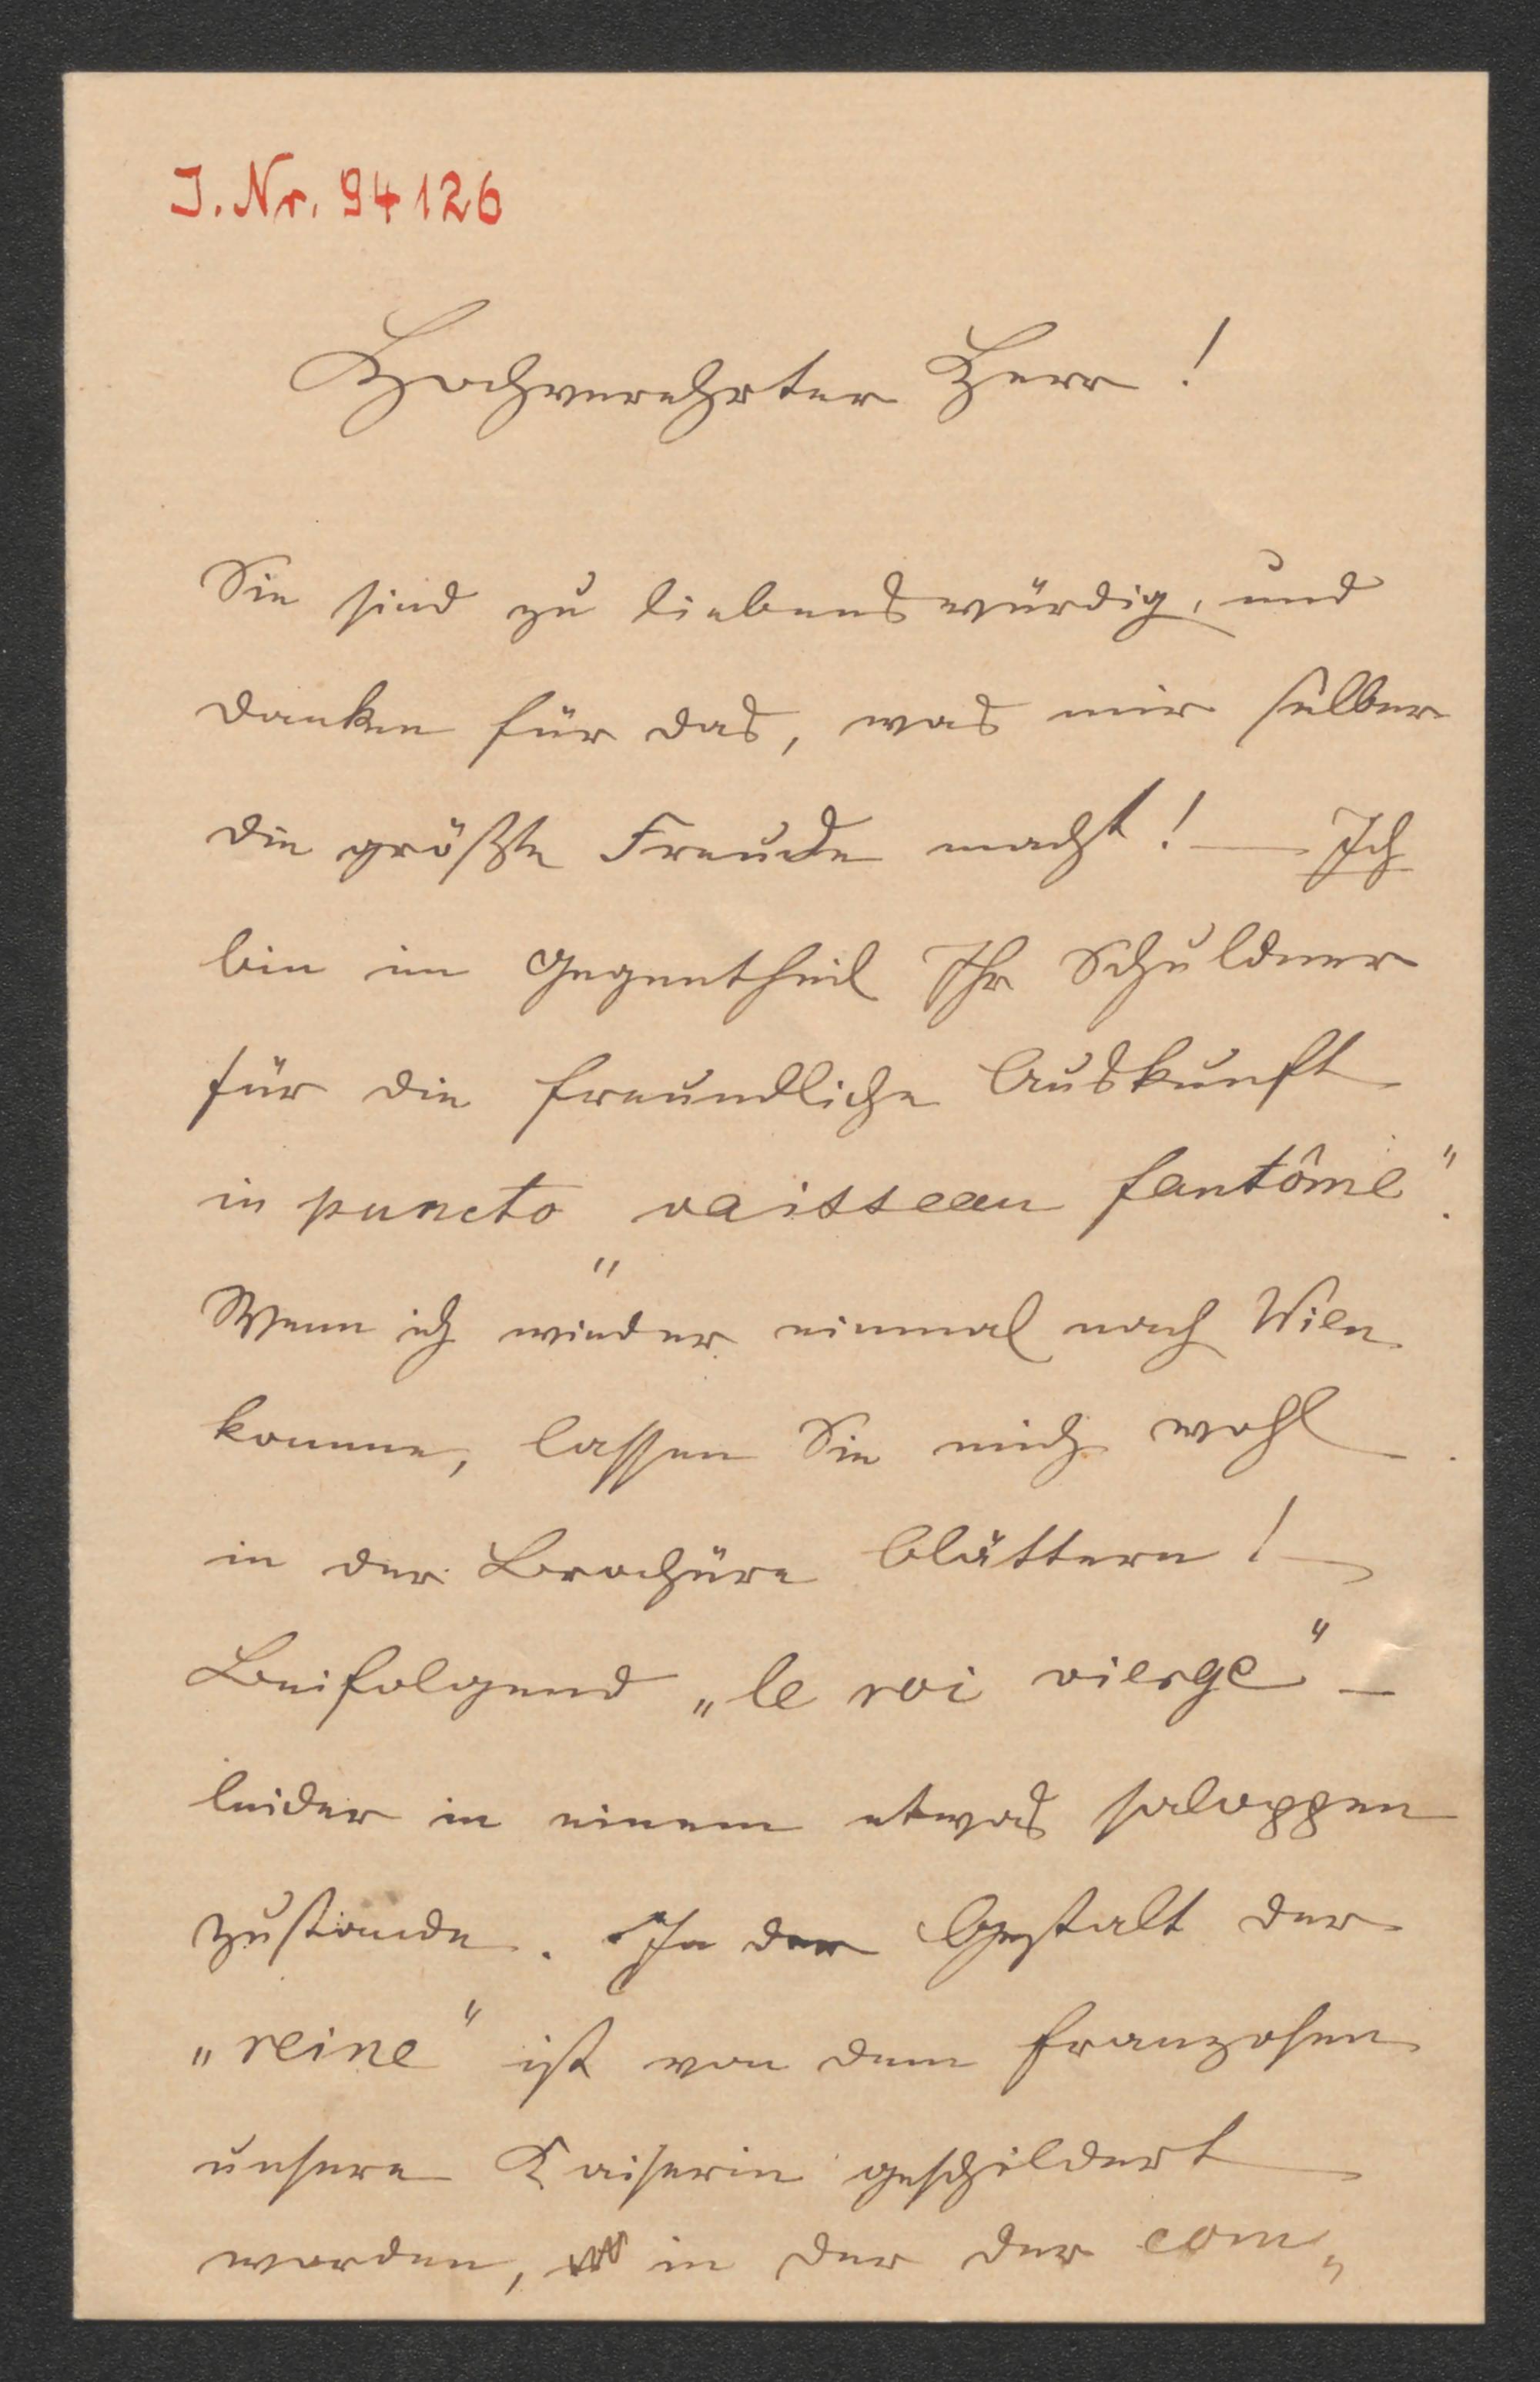 J. Nr. 94126
Hochverehrter Herr!
Sie sind zu liebenswürdig, und
danken für das, was mir selber
die größte Freude macht! — Ich
bin im Gegentheil Ihr Schuldner
für die freundliche Auskunft
in puncto „vaisseau fantôme".
Wenn ich wieder einmal nach Wien
komme, lassen Sie mich wohl
in der Brochüre blättern! —
Beifolgend „le roi vierge" —
leider in einem etwas saloppen
Zustande. In der Gestalt der
„reine" ist von dem Franzosen
unsere Kaiserin geschildert
worden, in der der com„